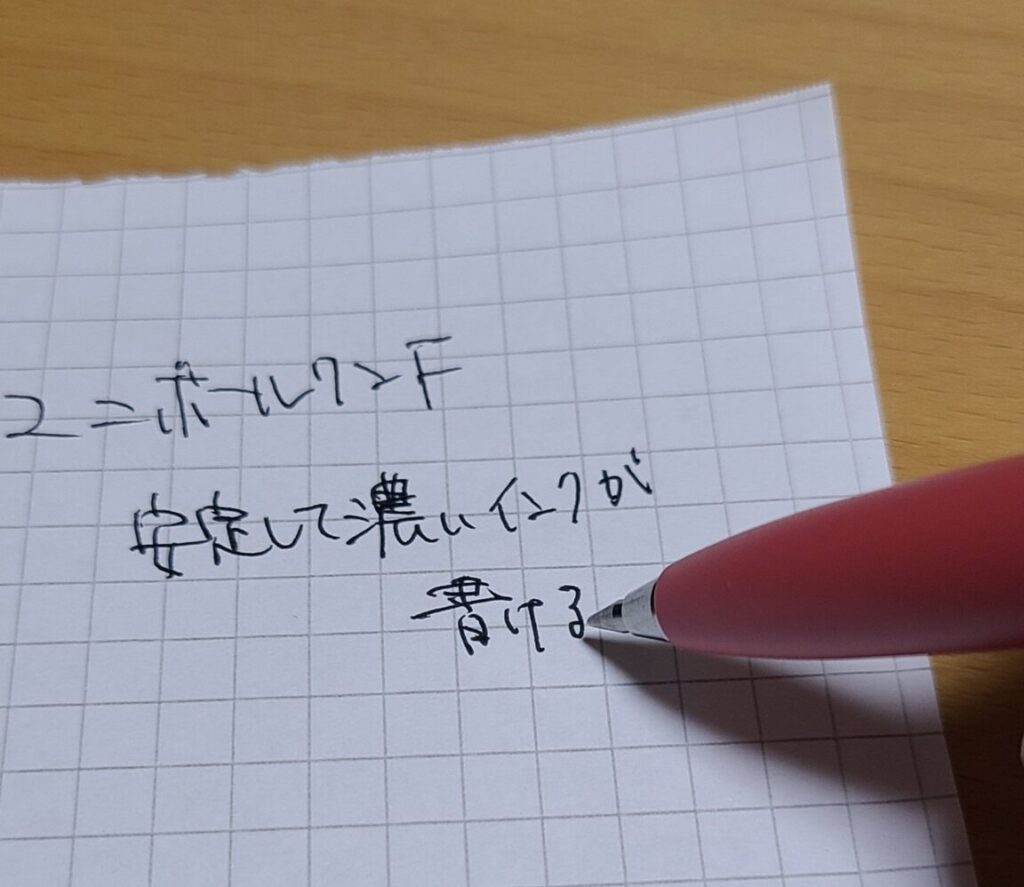 ユニボールワンF
安定して濃いインクが
書ける